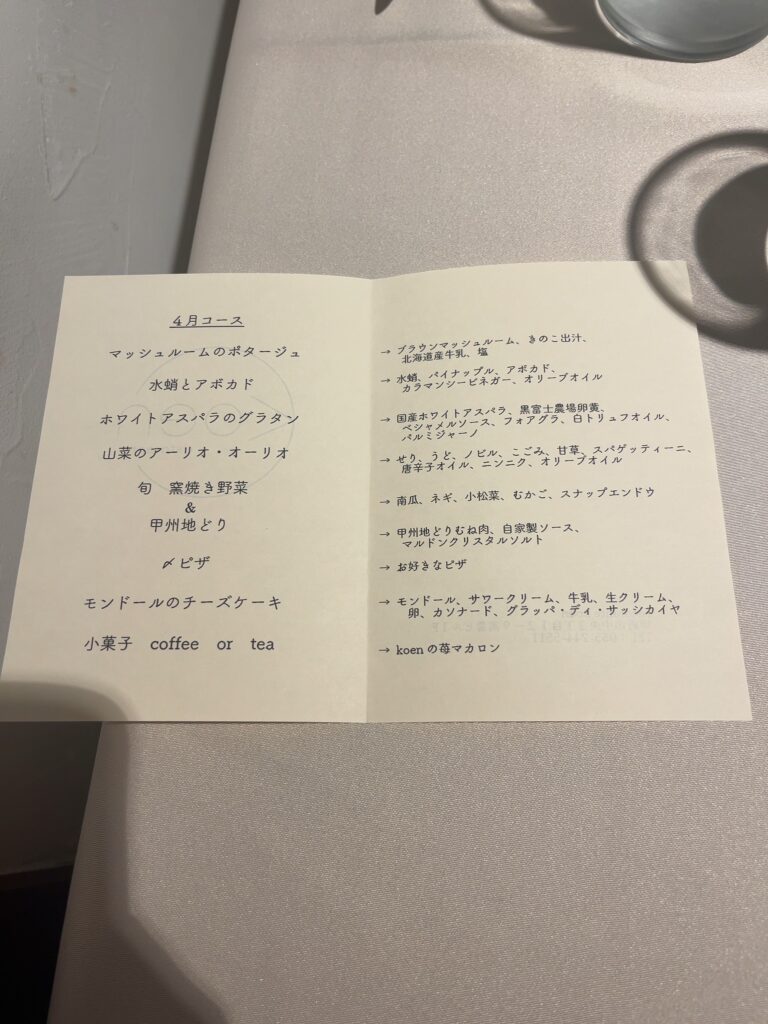 4月コース
マッシュルームのポタージュ
水蛸とアボカド
ホワイトアスパラのグラタン
山菜のアーリオ・オーリオ
旬　窯焼き野菜
&
甲州地どり
〆ピザ
モンドールのチーズケーキ
小菓子　coffee　or　tea
→ ブラウンマッシュルーム、きのこ出汁、
北海道産牛乳、塩
→ 水蛸、パイナップル、アボカド、
カラマンシービネガー、オリーブオイル
→ 国産ホワイトアスパラ、黒富士農場卵黄、
ベシャメルソース、フォアグラ、白トリュフオイル、
パルミジャーノ
→ せり、うど、ノビル、こごみ、甘草、スパゲッティーニ、
唐辛子オイル、ニンニク、オリーブオイル
→ 南瓜、ネギ、小松菜、むかご、スナップエンドウ
→ 甲州地どりむね肉、自家製ソース、
マルドンクリスタルソルト
→ お好きなピザ
→ モンドール、サワークリーム、牛乳、生クリーム、
卵、カソナード、グラッパ・ディ・サッシカイヤ
→ koenの苺マカロン